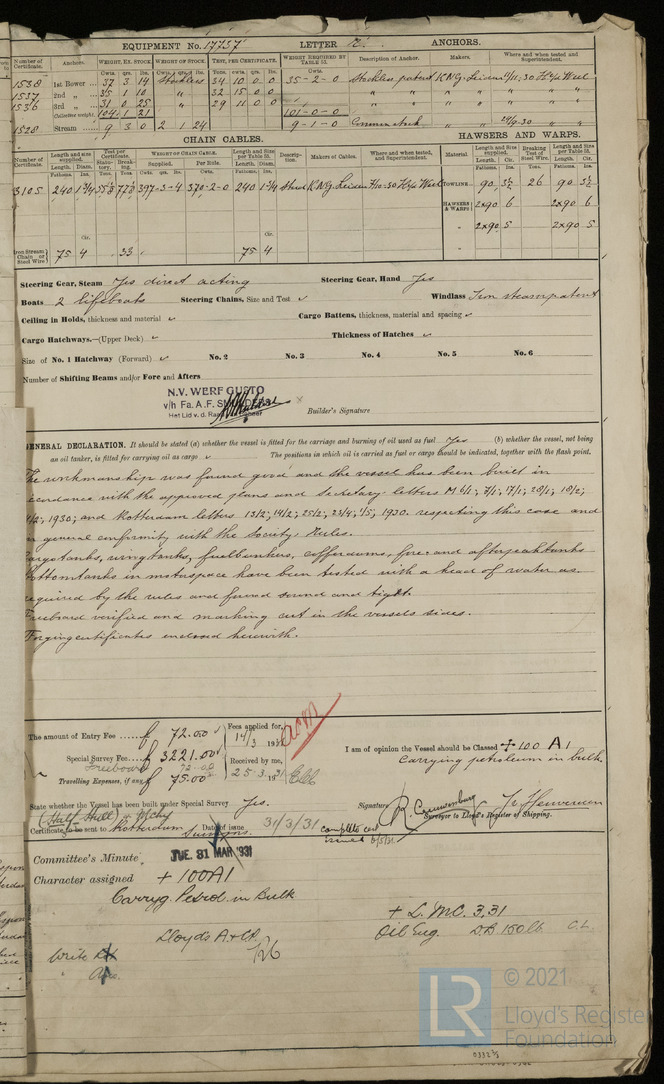 EQUIPMENT No. 17757 LETTER ANCHORS.
Number of Certificate. Anchors. WEIGHT, EX. STOCK. WEIGHT OF STOCK. TEST, PER CERTIFICATE. WEIGHT REQUIRED BY TABLE 53. Description of Anchor. Makers. Where and when tested and Superintendent.
1538 1st Bower 37 3 14 Stockless 34 10 0 0 35-2-0 Stockless patent
1537 2nd " 35 1 10 " 32 15 0 0 " "
1536 3rd " 31 0 25 " 29 11 0 0 " "
Collective weight 104 1 21 101-0-0
1528 Stream 9 3 0 2 1 24 9-1-0
CHAIN CABLES. HAWSERS AND WARPS.
Number of Certificate. Length and size supplied. Test per Certificate. WEIGHT OF CHAIN CABLE. Length and size per Table 53. Description. Makers of Cables. Where and when tested, and Superintendent. Material Length and size supplied. Breaking Test of Steel Wire. Length and size per Table 53.
3105 240 1 3/4 397-3-4 370-2-0 240 1 3/4 Stud TOWLINE 90 3½ 26 90 3½
HAWSERS & WARPS 2x90 6 2x90 6
" 2x90 5 2x90 5
Iron Stream Chain or Steel Wire 75 4 33 75 4
Steering Gear, Steam Yes direct acting Steering Gear, Hand Yes
Boats 2 lifeboats Steering Chains, Size and Test ✓ Windlass Iron steam patent
Ceiling in Holds, thickness and material ✓ Cargo Battens, thickness, material and spacing ✓
Cargo Hatchways.—(Upper Deck) ✓ Thickness of Hatches ✓
Size of No. 1 Hatchway (Forward) ✓ No. 2 No. 3 No. 4 No. 5 No. 6
Number of Shifting Beams and/or Fore and Afters
N.V. WERF GUSTO
v/h Fa. A. F. SMULDERS
Builder's Signature
GENERAL DECLARATION. It should be stated (a) whether the vessel is fitted for the carriage and burning of oil used as fuel Yes (b) whether the vessel, not being
an oil tanker, is fitted for carrying oil as cargo ✓ The positions in which oil is carried as fuel or cargo should be indicated, together with the flash point.
The workmanship was found good and the vessel has been built in
ccordance with the approved plans and Secretary letters M 6/1; 7/1; 17/1; 20/1; 10/2;
1930; and Rotterdam letters 13/2; 14/2; 25/2; 23/4; 1/5; 1930. respecting this case and
n general conformity with the Society's Rules.
argotanks, wingtanks, fuelbunkers, cofferdams, fore and afterpeaktanks
ottomtanks in motorspace have been tested with a head of water as
equired by the rules and found sound and tight.
Freeboard verified and marking cut in the vessels sides.
Forging certificates enclosed herewith.
The amount of Entry Fee f 72.00 Fees applied for, 14/3 1931
Special Survey Fee f 3221.00 Received by me,
Freeboard 72.00
Travelling Expenses, if any f 75.00 25.3.1931
I am of opinion the Vessel should be Classed + 100 A 1
carrying petroleum in bulk.
State whether the Vessel has been built under Special Survey Yes.
Signature
Surveyor to Lloyd's Register of Shipping.
(Half Hull) & Mchy
Certificate to be sent to Rotterdam Surveyors. Date of issue 31/3/31 complete cert
issued 6/5/31
Committee's Minute TUE. 31 MAR 1931
Character assigned + 100A1
Carryg. Petrol. in Bulk
+ L.M.C. 3,31
Lloyd's A & CP. Oil Eng. D.B 150 lb C.L.
Write
LR © 2021
Lloyd's Register
Foundation